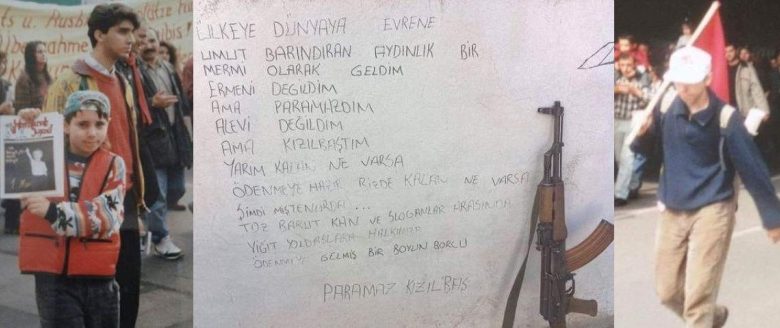 ÜLKEYE DÜNYAYA EVRENE
UMUT BARINDIRAN AYDINLIK BİR
MERMİ OLARAK GELDİM
ERMENİ DEĞİLDİM
AMA PARAMAZDIM
ALEVİ DEĞİLDİM
AMA KIZILBAŞTIM
YARIM KALAN NE VARSA
ÖDENMEYE HAZIR BİZDE KALAN NE VARSA
ŞİMDİ
TOZ BARUT KAN VE SLOGANLAR ARASINDA
YİĞİT YOLDAŞLARA HALKIMIZA
ÖDENMEYE GELMİŞ BİR BOYUN BORCU
PARAMAZ KIZILBAŞ